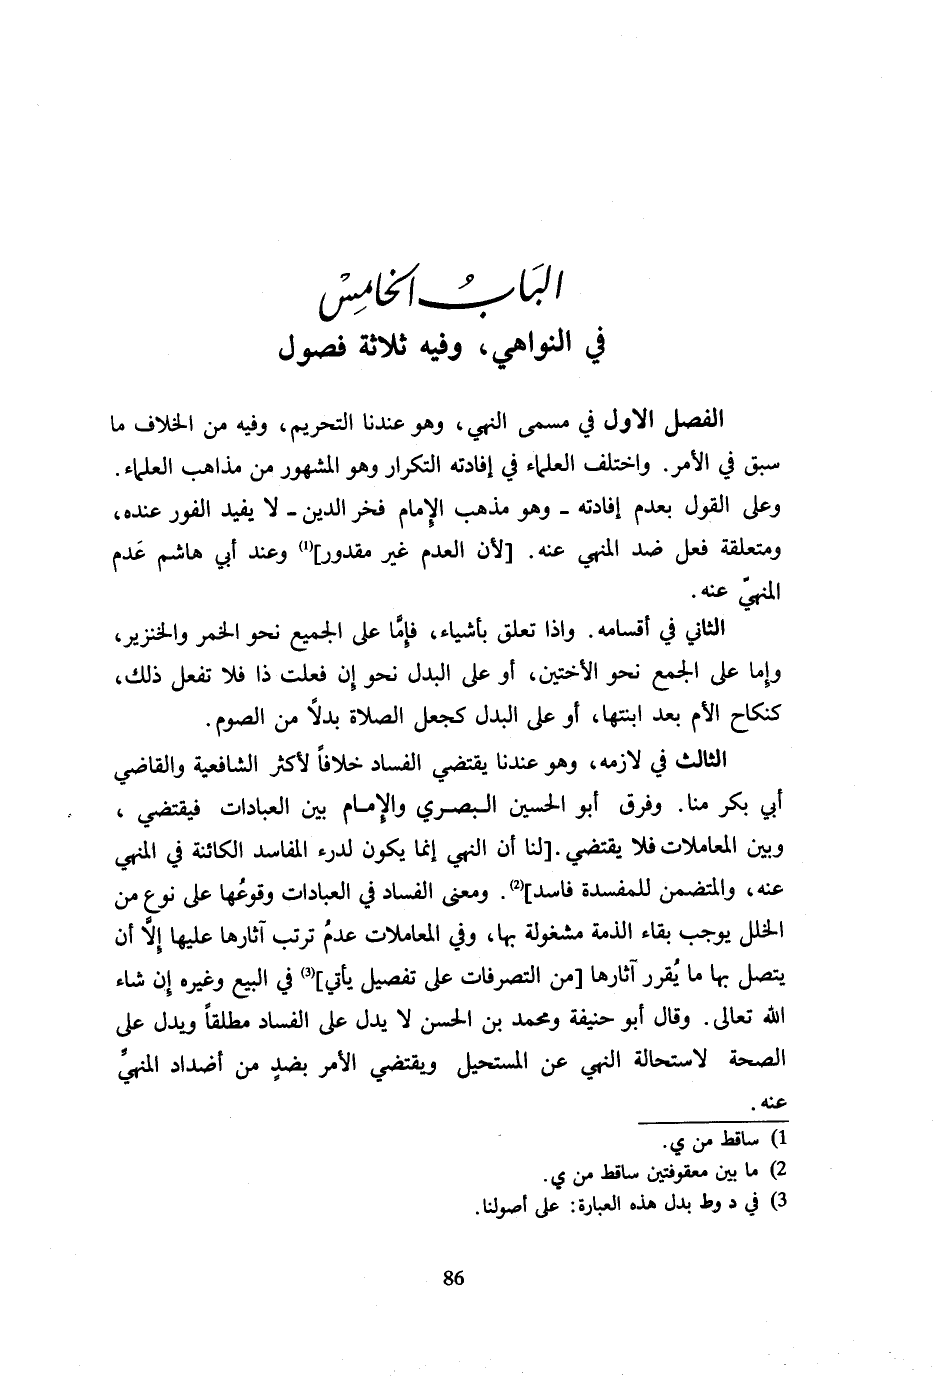 البَابُ الخَامِسْ
في النواهي، وفيه ثلاثة فصول
الفصل الاول في مسمى النهي، وهو عندنا التحريم، وفيه من الخلاف ما
سبق في الأمر. واختلف العلماء في إفادته التكرار وهو المشهور من مذاهب العلماء.
وعلى القول بعدم إفادته ـ وهو مذهب الإمام فخر الدين ـ لا يفيد الفور عنده،
ومتعلقة فعل ضد المنهي عنه. [لأن العدم غير مقدور](1) وعند أبي هاشم عَدم
المنهيّ عنه.
الثاني في أقسامه. واذا تعلق بأشياء، فإمَّا على الجميع نحو الخمر والخنزير،
وإما على الجمع نحو الأختين، أو على البدل نحو إن فعلت ذا فلا تفعل ذلك،
كنكاح الأم بعد ابنتها، أو على البدل كجعل الصلاة بدلاً من الصوم.
الثالث في لازمه، وهو عندنا يقتضي الفساد خلافاً لأكثر الشافعية والقاضي
أبي بكر منا. وفرق أبو الحسين البصري والإمام بين العبادات فيقتضي ،
وبين المعاملات فلا يقتضي .[لنا أن النهي إنما يكون لدرء المفاسد الكائنة في المنهي
عنه، والمتضمن للمفسدة فاسد](2). ومعنى الفساد في العبادات وقوعُها على نوع من
الخلل يوجب بقاء الذمة مشغولة بها، وفي المعاملات عدمُ ترتب آثارها عليها إلَّا أن
يتصل بها ما يُقرر آثارها [من التصرفات على تفصيل يأتي](3) في البيع وغيره إن شاء
الله تعالى. وقال أبو حنيفة ومحمد بن الحسن لا يدل على الفساد مطلقاً ويدل على
الصحة لاستحالة النهي عن المستحيل ويقتضي الأمر بضدٍ من أضداد المنهيِّ
عنه.
1) ساقط من ي.
2) ما بين معقوفتين ساقط من ي.
3) في د وط بدل هذه العبارة: على أصولنا.
86